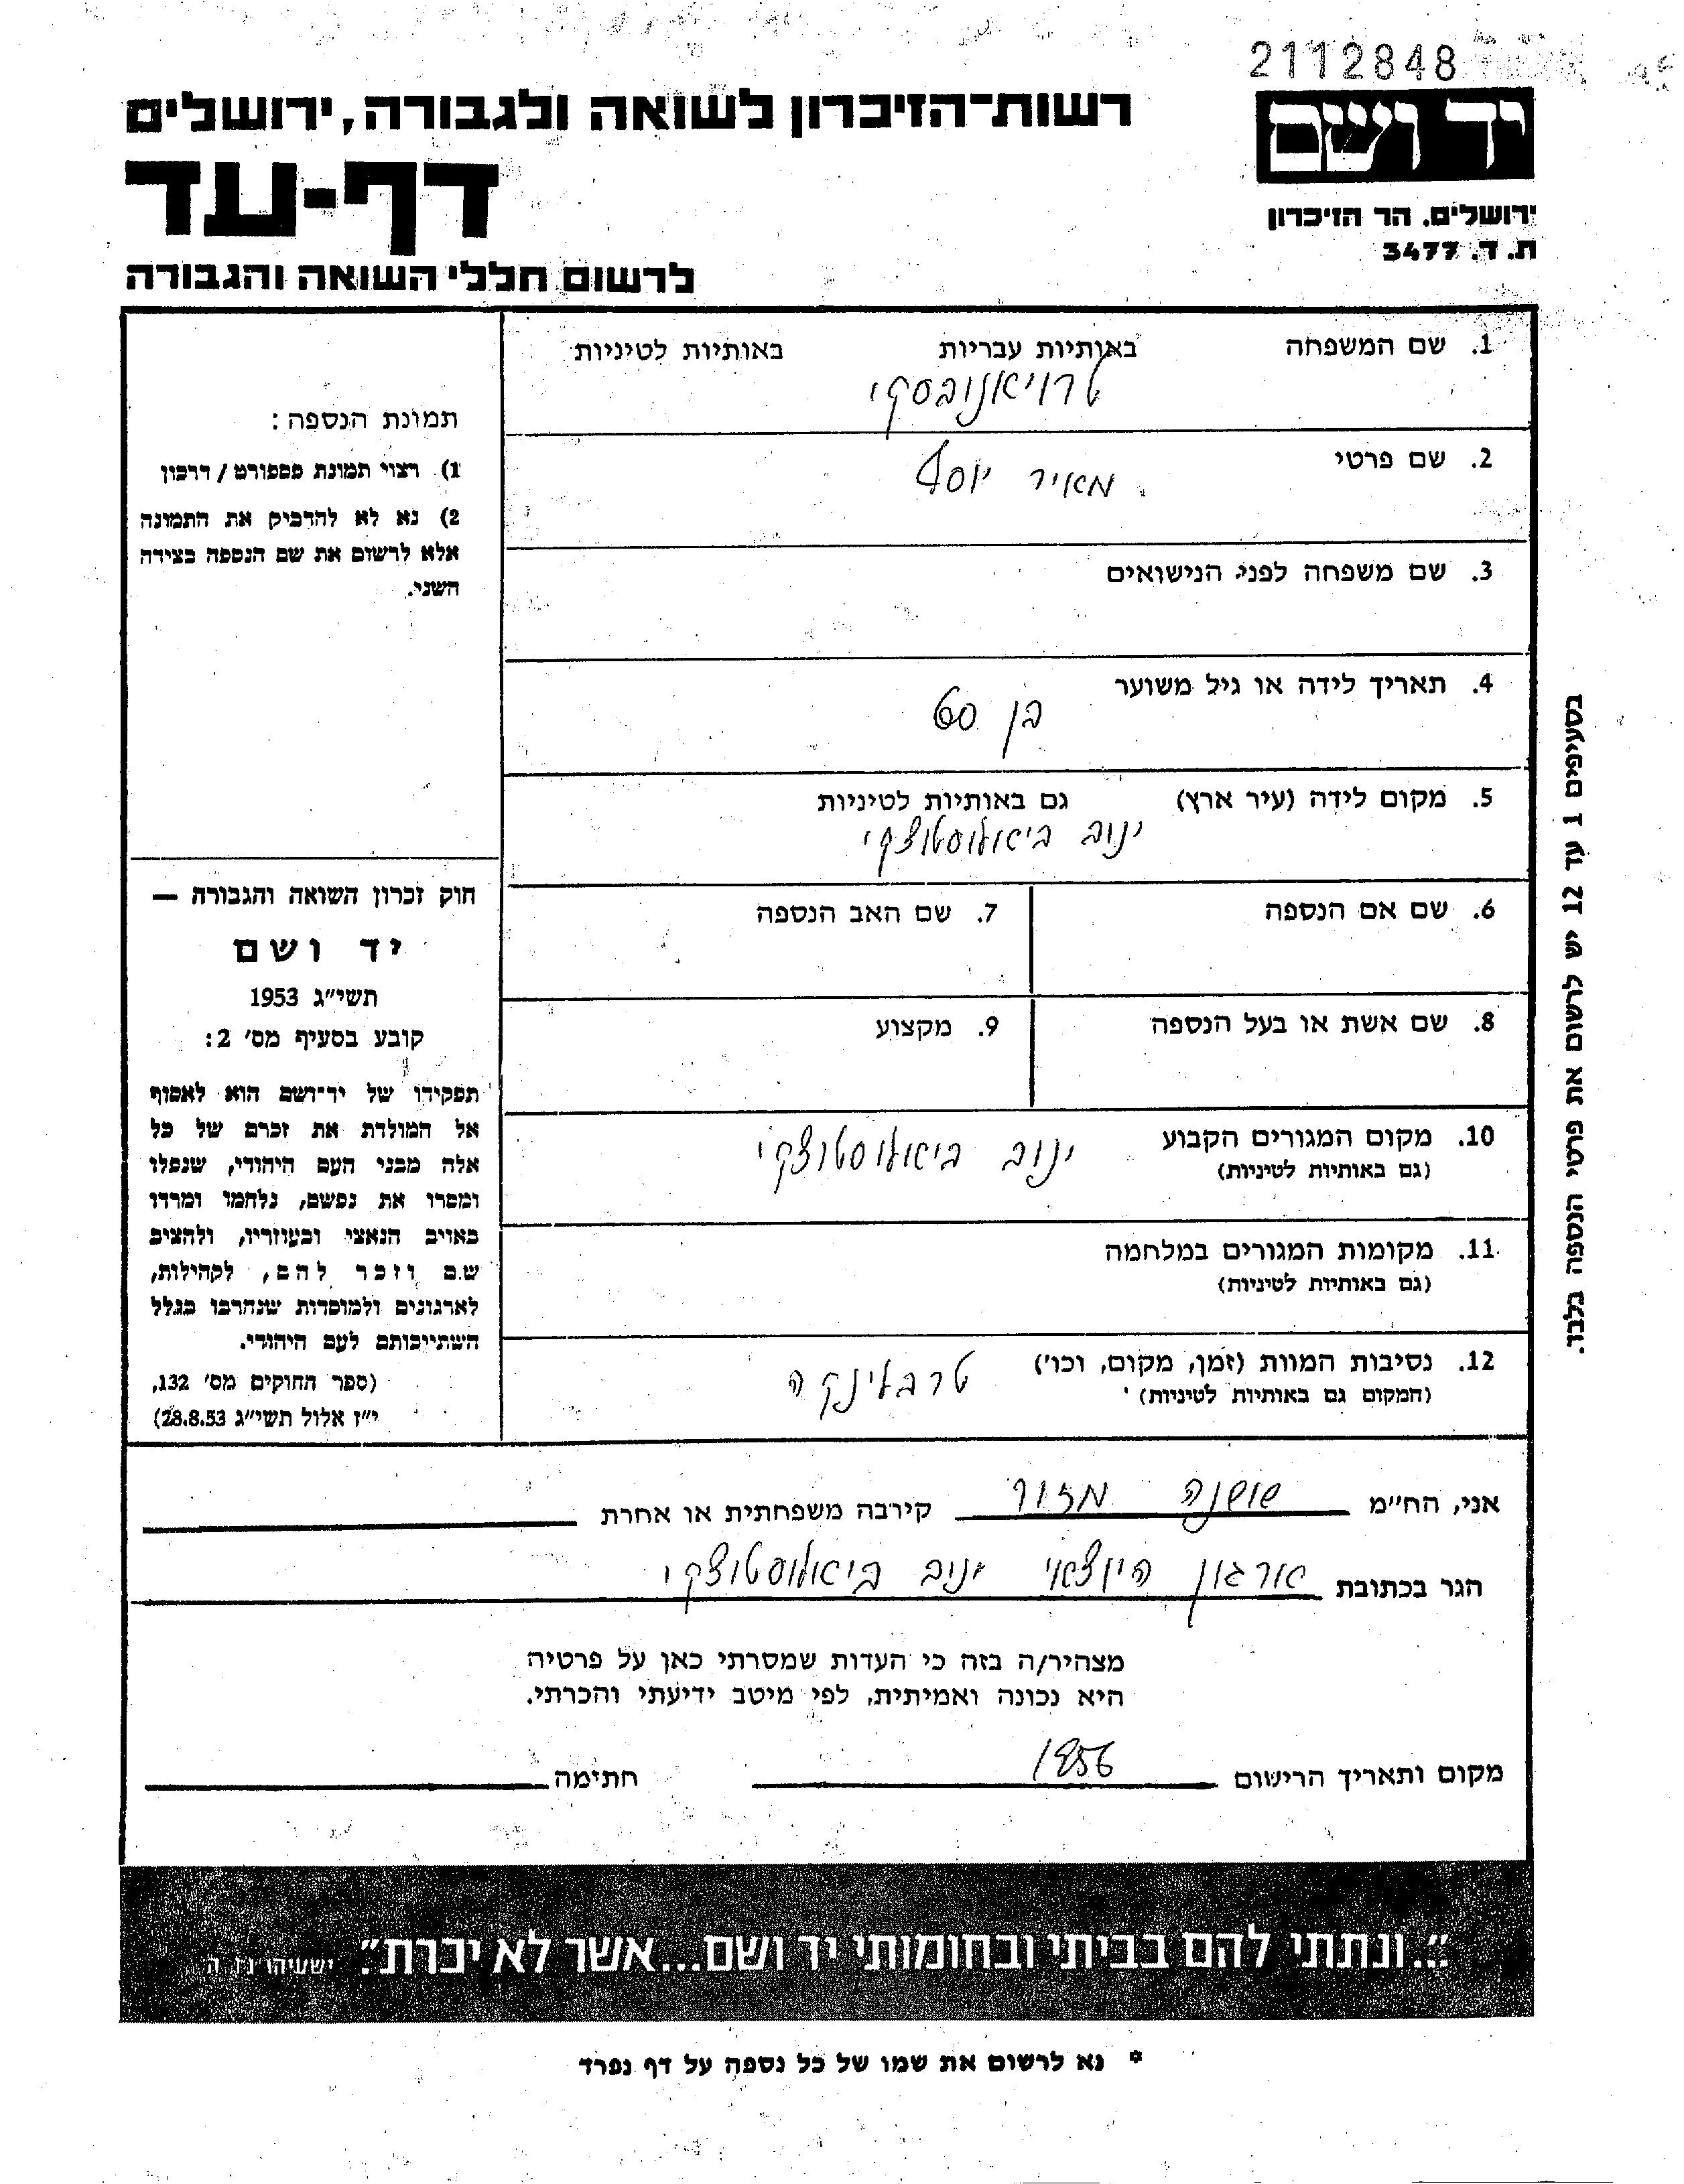 2112848
יד ושם
ירושלים. הר הזיכרון
ת. ד. 3477
רשות־הזיכרון לשואה ולגבורה, ירושלים
דף-עד
לרשום חללי השואה והגבורה
1. שם המשפחה באותיות עבריות באותיות לטיניות
טרויאנובסקי
2. שם פרטי
מאיר יוסף
3. שם משפחה לפני הנישואים
4. תאריך לידה או גיל משוער
בן 60
5. מקום לידה (עיר ארץ) גם באותיות לטיניות
ינוב ביאולוסטוצקי
6. שם אם הנספה 7. שם האב הנספה
8. שם אשת או בעל הנספה 9. מקצוע
10. מקום המגורים הקבוע
(גם באותיות לטיניות)
ינוב ביאולוסטוצקי
11. מקומות המגורים במלחמה
(גם באותיות לטיניות)
12. נסיבות המוות (זמן, מקום, וכו')
(המקום גם באותיות לטיניות)
טרבלינקה
תמונת הנספה:
1) רצוי תמונת פספורט / דרכון
2) נא לא להדביק את התמונה
אלא לרשום את שם הנספה בצידה
השני.
חוק זכרון השואה והגבורה —
יד ושם
תשי"ג 1953
קובע בסעיף מס' 2:
תפקידו של יד־ושם הוא לאסוף
אל המולדת את זכרם של כל
אלה מבני העם היהודי, שנפלו
ומסרו את נפשם, נלחמו ומרדו
באויב הנאצי ובעוזריו, ולהציב
שם וזכר להם, לקהילות,
לארגונים ולמוסדות שנחרבו בגלל
השתייכותם לעם היהודי.
(ספר החוקים מס' 132,
י"ז אלול תשי"ג 28.8.53)
בסעיפים 1 עד 12 יש לרשום את פרטי הנספה בלבד.
אני, הח"מ שושנה מזור קירבה משפחתית או אחרת
הגר בכתובת ארגון היוצאי ינוב ביאולוסטוצקי
מצהיר/ה בזה כי העדות שמסרתי כאן על פרטיה
היא נכונה ואמיתית, לפי מיטב ידיעתי והכרתי.
מקום ותאריך הרישום 1956 חתימה
"...ונתתי להם בביתי ובחומותי יד ושם...אשר לא יכרת". ישעיהו נו ה
* נא לרשום את שמו של כל נספה על דף נפרד